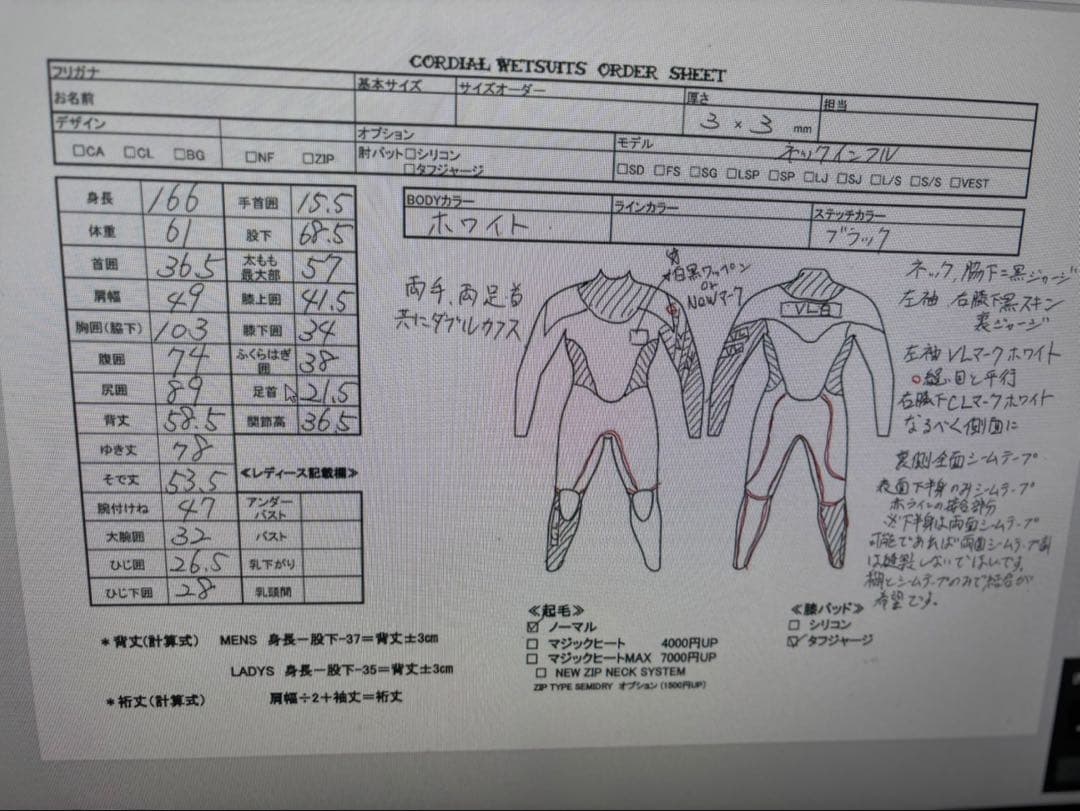 CORDIAL WETSUITS ORDER SHEET
フリガナ
お名前
基本サイズ
サイズオーダー
厚さ
3 × 3 mm
担当
デザイン
□CA □CL □BG □NF □ZIP
オプション
肘パット□シリコン
□タフジャージ
モデル
ネックインフル
□SD □FS □SG □LSP □SP □LJ □SJ □L/S □S/S □VEST
身長 166 手首囲 15.5
体重 61 股下 68.5
首囲 36.5 太もも最大部 57
肩幅 49 膝上囲 41.5
胸囲(脇下) 103 膝下囲 34
腹囲 74 ふくらはぎ囲 38
尻囲 89 足首 21.5
背丈 58.5 関節高 36.5
ゆき丈 78
そで丈 53.5
腕付けね 47
大腕囲 32
ひじ囲 26.5
ひじ下囲 28
≪レディース記載欄≫
アンダーバスト
バスト
乳下がり
乳頭間
BODYカラー
ホワイト
ラインカラー
ステッチカラー
ブラック
両手、両足首
共にダブルカフス
白黒ワッペン
or
NEWマーク
VL白
VL
ネック、脇下=黒ジャージ
左袖 右膝下黒スキン
裏ジャージ
左袖 VLマークホワイト
○縫い目と平行
右膝下CLマークホワイト
なるべく側面に
裏側全面シームテープ
表面下半身のみシームテープ
赤ラインの接合部分
※下半身は両面シームテープ
可能であれば両面シームテープ部
は縫製しないでほしいです。
糊とシームテープのみで結合が
希望です。
≪起毛≫
☑ ノーマル
□ マジックヒート 4000円UP
□ マジックヒートMAX 7000円UP
□ NEW ZIP NECK SYSTEM
ZIP TYPE SEMIDRY オプション(1500円UP)
≪膝パッド≫
□ シリコン
☑ タフジャージ
*背丈(計算式) MENS 身長ー股下-37=背丈±3cm
LADYS 身長ー股下-35=背丈±3cm
*裄丈(計算式) 肩幅÷2+袖丈=裄丈